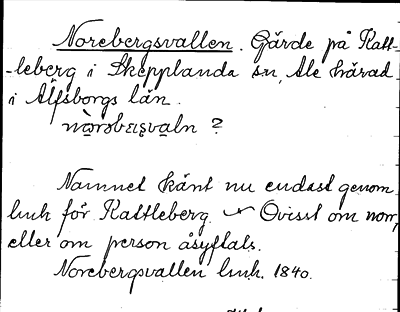 Norebergsvallen. Gärde på Katt-
-leberg i Skepplanda sn, Ale härad
i Älfsborgs län.
?
Namnet känt nu endast genom
lmk för Kattleberg. Ovisst om norr,
eller om person åsyftats.
Norebergsvallen lmk. 1840.